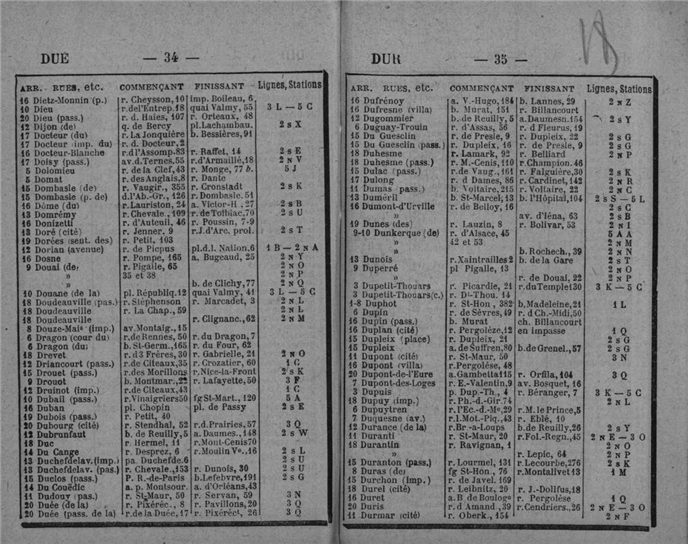 DUE — 34 —
ARR. RUES, etc. COMMENÇANT FINISSANT Lignes, Stations
16 Dietz-Monnin (p.) r. Cheysson, 10 imp. Boileau, 6
10 Dieu r. del'Entrep. 18 quai Valmy, 55 3 L — 5 C
20 Dieu (pass.) r. d. Haies, 107 r. Orteaux, 48
12 Dijon (de) q. de Bercy pl. Lachambau. 2 S X
17 Docteur (du) r. La Jonquière b. Bessières, 91
17 Docteur (imp. du) r. d. Docteur, 2
16 Docteur-Blanche r. d'Assomp. 83 r. Raffet, 14 2 S E
17 Doisy (pass.) av. d. Ternes, 55 r. d'Armaillé, 18 2 N V
5 Dolomieu r. de la Clef, 43 r. Monge, 77 b. 5 J
5 Domat r. des Anglais, 8 r. Dante
15 Dombasle (de) r. Vaugir., 355 r. Cronstadt 2 S K
15 Dombasle (p. de) r. d'Ab.-Gr., 126 r. Dombasle, 51
16 Dôme (du) r. Lauriston, 24 a. Victor-H., 27 2 S B
13 Domrémy r. Chevale., 109 r. de Tolbiac, 79 2 S U
16 Donizetti r. d'Auteuil, 46 r. Poussin, 7-9
13 Doré (cité) r. Jenner, 9 r. J. d'Arc. prol. 2 S T
19 Dorées (sent. des) r. Petit, 103
12 Dorian (avenue) r. de Picpus pl. d. l. Nation, 6 1 B — 2 N A
16 Dosne r. Pompe, 165 a. Bugeaud, 25 2 N Y
9 Douai (de) r. Pigalle, 65 2 N O
» 35 et 38 2 N P
» b. de Clichy, 77 2 N Q
10 Douane (de la) pl. Républiq, 12 quai Valmy, 41 3 L — 5 C
18 Doudeauville (pass.) r. Stéphenson r. Marcadet, 3 2 N L
18 Doudeauville r. La Chap., 59 2 N L
18 Doudeauville r. Clignanc., 62 2 N M
8 Douze-Mais (imp.) av. Montaig., 15
6 Dragon (cour du) r. de Rennes, 50 r. du Dragon, 7
6 Dragon (du) b. St-Germ., 165 r. du Four, 62
18 Drevet r. d 3 Frères, 30 r. Gabrielle, 21 2 N O
12 Driancourt (pass.) r. de Citeaux, 35 r. Crozatier, 60 1 C
15 Drouet (pass.) r. des Morillons r. Nice-la Front 2 S K
9 Drouot b. Montmar., 22 r. Lafayette, 50 3 F
12 Druinot (imp.) r. de Citeaux, 43 1 C
10 Dubail (pass.) r. Vinaigriers 50 fg St-Mart., 120 5 A
16 Duban pl. Chopin pl. de Passy 2 S E
19 Dubois (pass.) r. Petit, 40
20 Dubourg (cité) r. Stendhal, 52 r. d. Prairies, 57 3 Q
12 Dubrunfaut b. de Reuilly, 5 a. Daumes., 148 2 S W
18 Duc r. Hermel, 11 r. Mont-Cenis 70
14 Du Cange r. Desprez, 6 r. Moulin Ve., 16 2 S L
13 Duchefdelav. (imp.) pa. Duchefde. 6 2 S U
13 Duchefdelav. (pass.) r. Chevale., 153 r. Dunois, 30 2 S U
15 Duclos (pass.) P. R.-de-Paris b. Lefebvre, 191 2 S G
14 Du Couëdic a. p. Montsour. a. d'Orléans, 43
11 Dudouy (pass.) r. St-Maur, 50 r. Servan, 59 3 N
20 Duée (de la) r. Pixéréc., 8 r. Pavillons, 20 3 Q
20 Duée (pass. de la) r. de la Duée, 17 r. Pixéréct, 26 3 Q
DUR — 35 —
ARR. RUES, etc. COMMENÇANT FINISSANT Lignes, Stations
16 Dufrénoy a. V.-Hugo, 184 b. Lannes, 29 2 N Z
16 Dufresne (villa) b. Murat, 151 r. Billancourt
12 Dugommier b. de Reuilly, 5 a. Daumesn. 154 2 S Y
6 Duguay-Trouin r. d'Assas, 56 r. d Fleurus, 19
15 Du Guesclin r. de Presle, 9 r. Dupleix, 22 2 S G
15 Du Guesclin (pass.) r. Dupleix, 16 r. de Presle, 9 2 S G
18 Duhesme r. Lamark, 92 r. Belliard 2 N P
18 Duhesme (pass.) r. M.-Cenis, 110 r. Champion. 46
15 Dulac (pass.) r. de Vaug., 161 r. Falguière, 30 2 S K
17 Dulong r. d Dames, 86 r. Cardinet, 142 2 N R
11 Dumas (pass.) b. Voltaire, 215 r. Voltaire, 22 2 N C
13 Duméril b. St-Marcel, 13 b. l'Hôpital, 104 2 S S — 5 L
16 Dumont-d'Urville r. de Belloy, 16 2 S C
» av. d'Iéna, 63 2 S B
19 Dunes (des) r. Lauzin, 8 r. Bolivar, 53 2 N I
9-10 Dunkerque (de) r. d'Alsace, 45 5 A A
» 42 et 53 2 N M
» b. Rochech., 39 2 N N
13 Dunois r. Xaintrailles 2 b. de la Gare 2 S T
9 Duperré pl Pigalle, 13 2 N O
» r. de Douai, 22 2 N P
3 Dupetit-Thouars r. Picardie, 21 r. du Temple 130 3 K — 5 C
3 Dupetit-Thouars (c.) r. D.-Thou. 14
1-8 Duphot r. St-Hon, 382 b. Madeleine, 21 1 L
6 Dupin r. de Sèvres, 49 r. d Ch.-Midi, 50
16 Dupin (pass.) b. Murat ch. Billancourt
16 Duplan (cité) r. Pergolèze, 12 en impasse 1 Q
15 Dupleix (place) r. Dupleix, 21 2 S G
15 Dupleix a. de Suffren, 80 b. de Grenel., 57 2 S G
11 Dupont (cité) r. St-Maur, 50 3 N
16 Dupont (villa) r. Pergolèse, 48
20 Dupont-de-l'Eure a. Gambetta 15 r. Orfila, 104 3 Q
7 Dupont-des-Loges r. E.-Valentin, 9 av. Bosquet, 16
3 Dupuis p. Dup.-Th., 4 r. Béranger, 7 3 K — 5 C
18 Dupuy (imp.) r. Ph.-d.-Gir. 74 2 N L
6 Dupuytren r. l'Ec.-d.-M., 29 r. M. le Prince, 5
7 Duquesne (av.) r. l. Mot.-Piq., 43 r. Éblé, 10
12 Durance (de la) r. Br.-a-Loups b. de Reuilly, 26 2 S Y
11 Duranti r. St-Maur, 20 r. Fol.-Regn., 45 2 N E — 3 O
18 Durantin r. Ravignan, 1 2 N O
» r. Lepic, 64 2 N P
15 Duranton (pass.) r. Lourmel, 131 r. Lecourbe, 276 2 S K
8 Duras (de) fg St-Hon., 76 r. Montalivet 13 1 M
15 Durchon (imp.) r. de Javel, 169
18 Durel (cité) r. Leibnitz, 29 r. J.-Dollfus, 18
16 Duret a. B de Boulog. r. Pergolèse 1 Q
20 Duris r. d Amand., 39 r. Cendriers., 26 2 N E — 3 O
11 Durmar (cité) r. Oberk., 154 2 N F